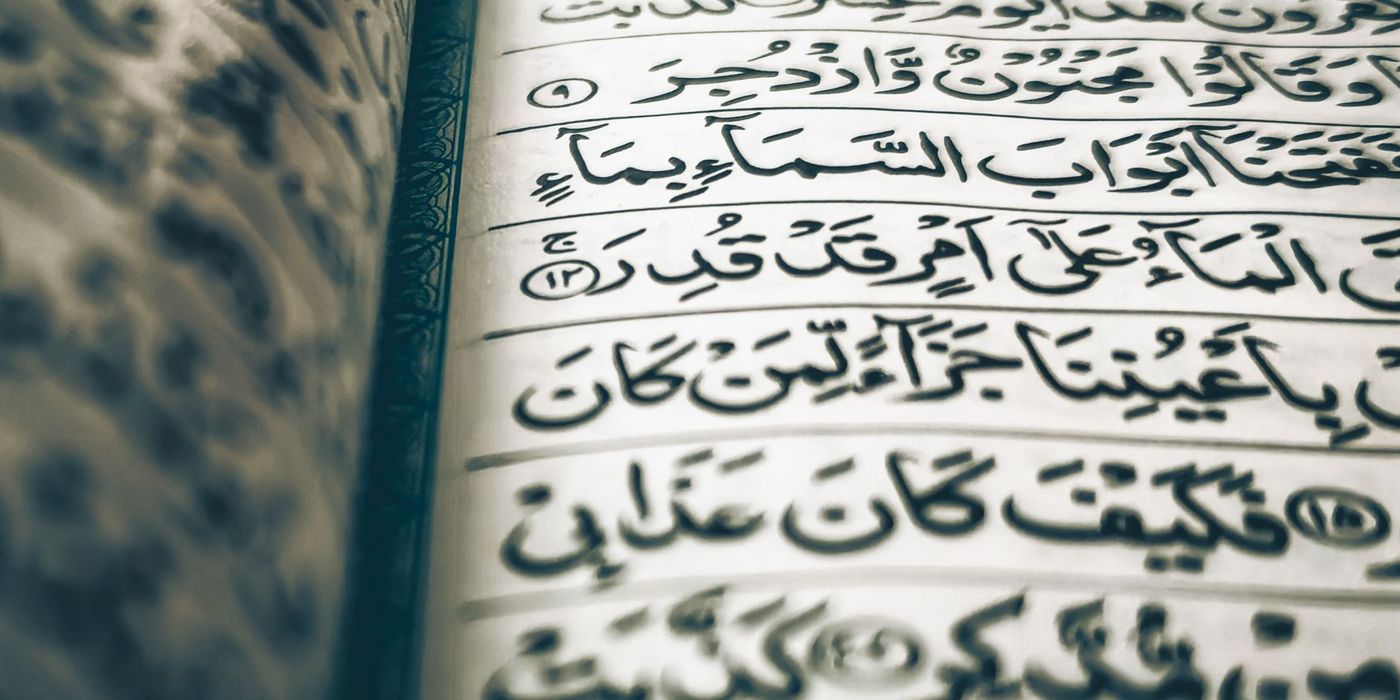 هٰذَا يَوْمٌ عَسِرٌ كَذَّبَتْ
وَقَالُوْا مَجْنُوْنٌ وَّازْدُجِرَ ۹
فَفَتَحْنَاۤ اَبْوَابَ السَّمَآءِ بِمَآءٍ
الْمَآءُ عَلٰۤى اَمْرٍ قَدْ قُدِرَ ج ۱۲
بِاَعْيُنِنَا جَزَآءً لِّمَنْ كَانَ
۱۵ فَكَيْفَ كَانَ عَذَابِيْ
مِنْ مُّدَّكِرٍ كَذَّبَتْ